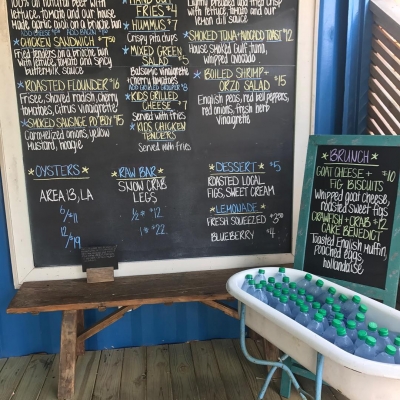 100% all natural beef with
lettuce, tomato and our house
made garlic aioli on a bun
*CHICKEN SANDWICH *$7.50
Fried tenders on a brioche bun
with lettuce, tomato and spicy
buttermilk sauce
*ROASTED FLOUNDER $16
Frisee, shaved radish, cherry
tomatoes, Citrus vinaigrette
*SMOKED SAUSAGE PO' BOY $15
Caramelized onions, yellow
mustard, hoagie
HAND CUT
FRIES $4
*HUMMUS $7
Crispy pita chips
*MIXED GREEN
SALAD $5
Balsamic vinaigrette
+ cherry tomatoes
*KIDS GRILLED
CHEESE $7
Served with fries
*KIDS CHICKEN
TENDERS
Served with fries.
with lettuce, tomato and our
lemon dill sauce
*SMOKED TUNA + AVOCADO TOAST $12
House smoked Gulf tuna,
whipped avocado
*BOILED SHRIMP-
ORZO SALAD $15
English peas, red bell peppers,
red onions, fresh herb
vinaigrette
*OYSTERS*
AREA 13, LA
6/$11
12/$19
*RAW BAR*
SNOW CRAB
LEGS
1/2# $12
1# $22
*DESSERT* $5
ROASTED LOCAL
FIGS, SWEET CREAM
*LEMONADE*
FRESH SQUEEZED $3.50
BLUEBERRY $4
*BRUNCH*
GOAT CHEESE + $10
FIG BISCUITS
Whipped goat cheese,
roasted sweet figs
CRAWFISH + CRAB $12
CAKE BENEDICT
Toasted English muffin,
poached eggs,
hollandaise